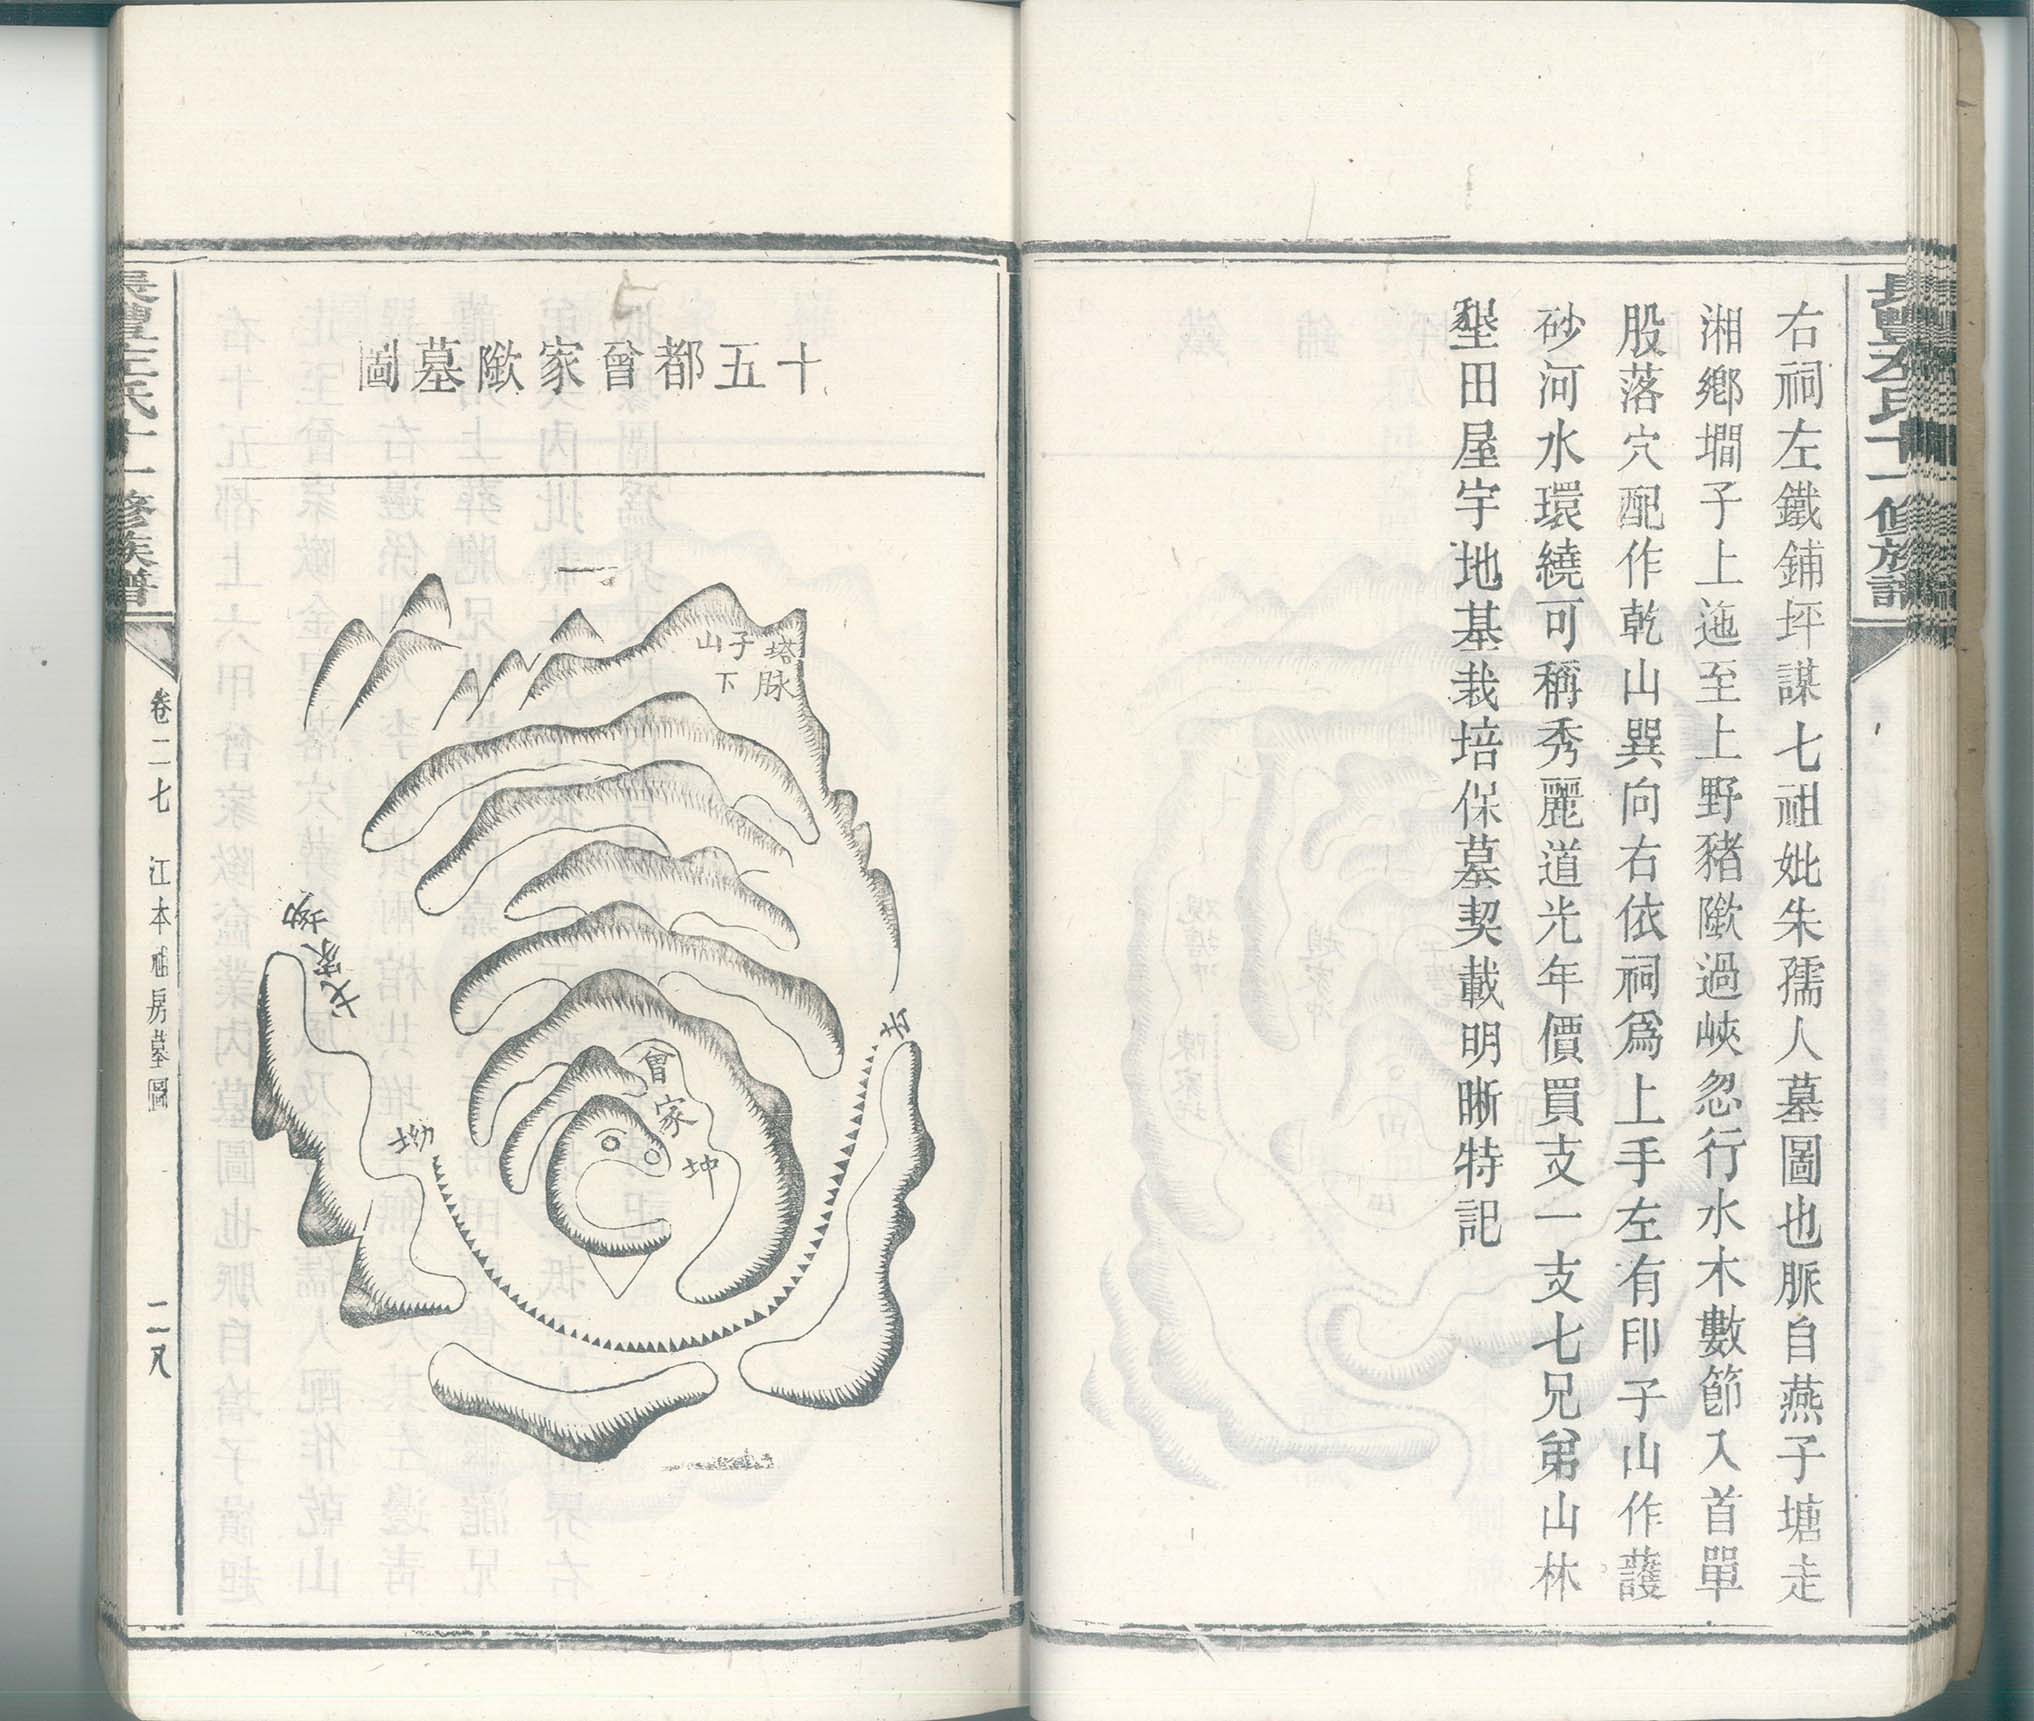 右祠左鐵鋪坪謀七祖妣朱孺人墓圖也脈自燕子塘走
湘鄉壩子上迤至上野豬㘚過峽忽行水木數節入首單
股落穴配作乾山巽向右依祠爲上手左有印子山作護
砂河水環繞可稱秀麗道光年價買支一支七兄弟山林
墾田屋宇地基栽培保墓契載明晰特記
十五都曾家㘚墓圖
塔子山
脈下
戈家坳
坳
曾家坤
左氏十一修族譜
卷二七
江本
房墓圖
二八